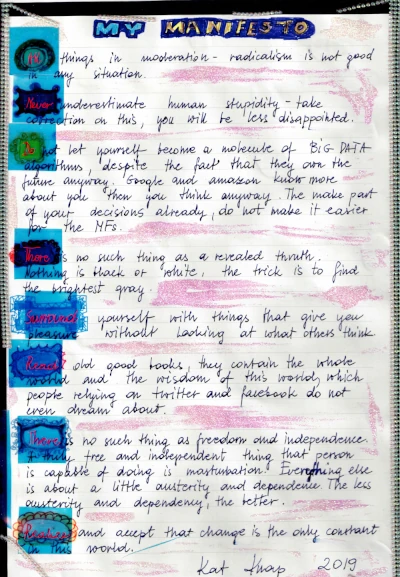 MY MANIFESTO
All things in moderation - radicalism is not good
in any situation.
Never underestimate human stupidity - take
correction on this, you will be less disappointed.
Do not let yourself become a molecule of BIG DATA
algorithms, despite the fact that they own the
future anyway. Google and amazon know more
about you then you think anyway. The make part
of your decisions already, do not make it easier
for the MFs.
There is no such thing as a revealed thruth.
Nothing is black or white, the trick is to find
the brightest gray.
Surround yourself with things that give you
pleasure without looking at what others think
Read old good books, they contain the whole
world and the wisdom of this world, which
people relying on twitter and facebook do not
even dream about.
There is no such thing as freedom and independence.
A truly free and independent thing that person
is capable of doing is masturbation. Everything else
is about a little austerity and dependence. The less
austerity and dependency, the better.
and accept that change is the only constant
in this world.
Kat 2019